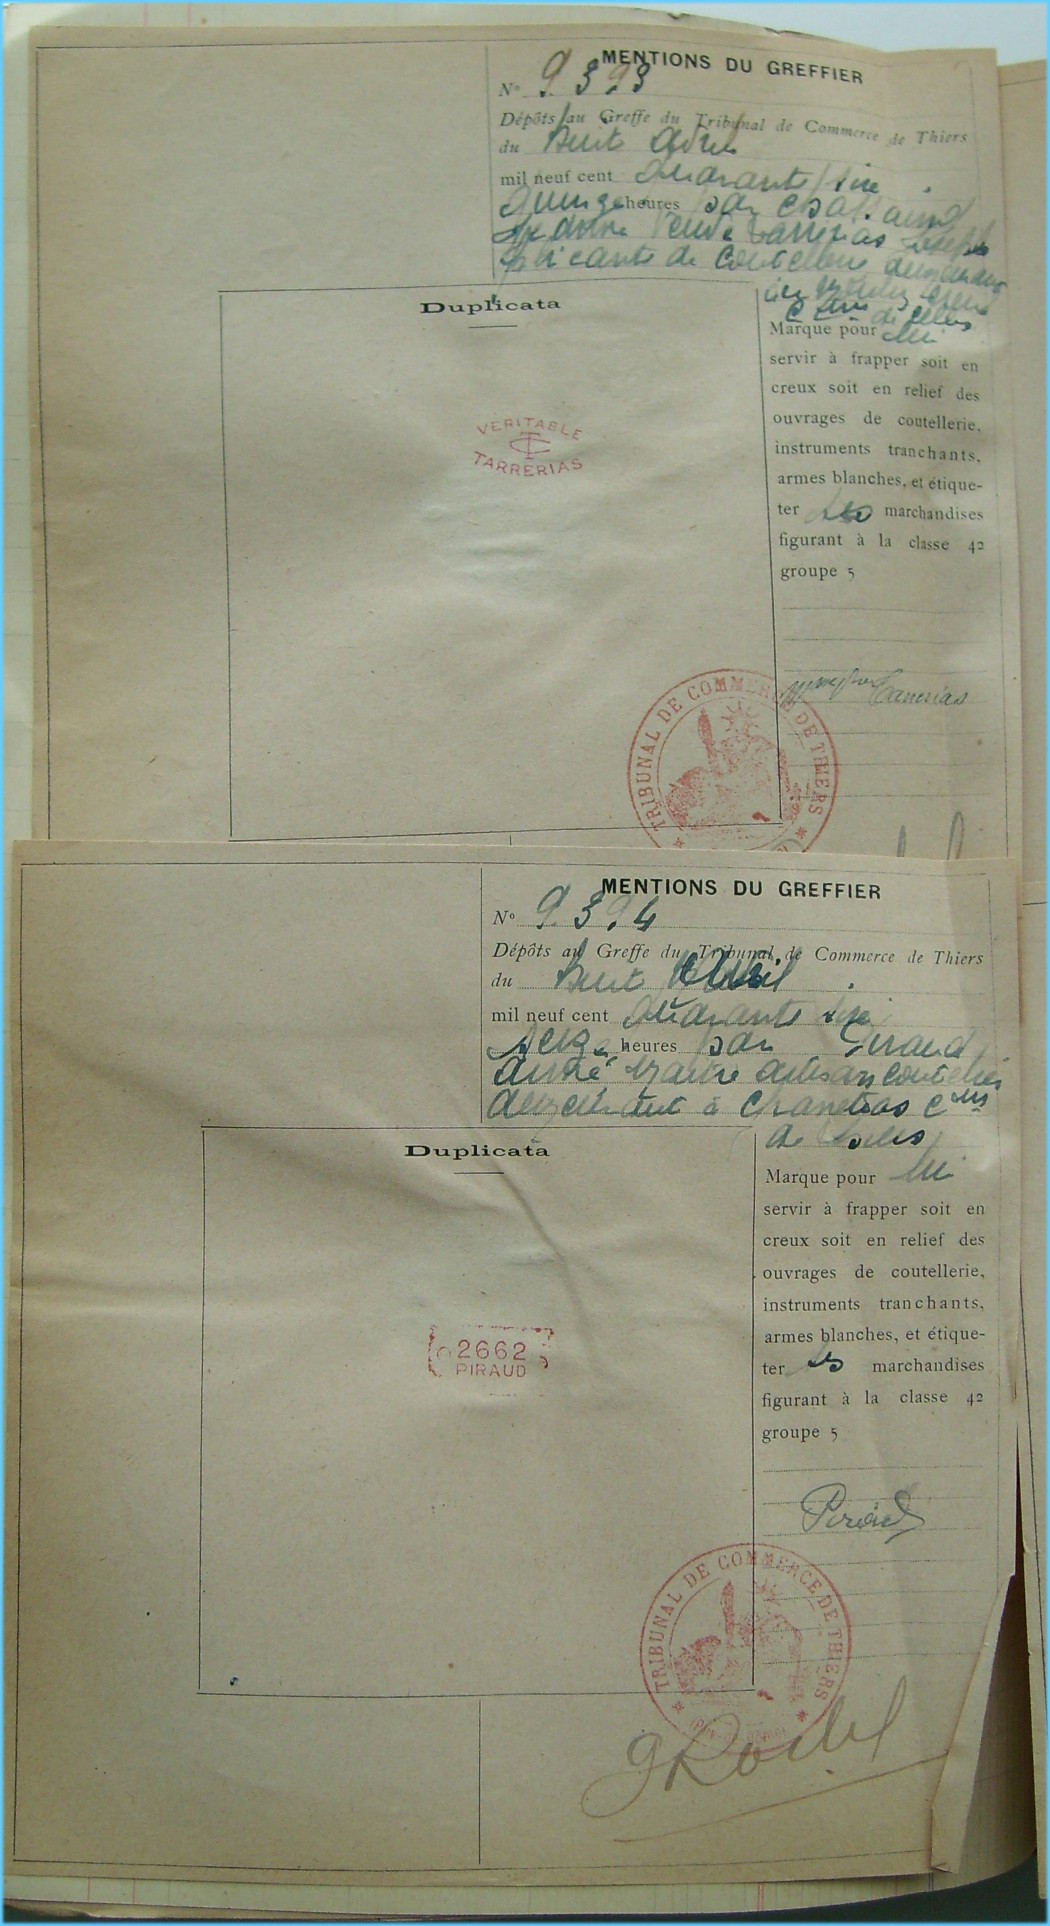 MENTIONS DU GREFFIER
N° 9393
Dépôts au Greffe du Tribunal de Commerce de Thiers
du huit avril
mil neuf cent quarante six
quinze heures par
veuve Tarrerias Joseph
de coutellerie
Cne de Celles
Duplicata
Marque pour lui
servir à frapper soit en
creux soit en relief des
ouvrages de coutellerie,
instruments tranchants,
armes blanches, et étique-
ter les marchandises
figurant à la classe 42
groupe 5
VERITABLE
TC
TARRERIAS
Tarrerias
TRIBUNAL DE COMMERCE DE THIERS
MENTIONS DU GREFFIER
N° 9394
Dépôts au Greffe du Tribunal de Commerce de Thiers
du huit avril
mil neuf cent quarante six
seize heures par Piraud
André maître artisan coutelier
demeurant à Chanelias Cne
de Celles
Duplicata
Marque pour lui
servir à frapper soit en
creux soit en relief des
ouvrages de coutellerie,
instruments tranchants,
armes blanches, et étique-
ter les marchandises
figurant à la classe 42
groupe 5
2662
PIRAUD
Piraud
TRIBUNAL DE COMMERCE DE THIERS